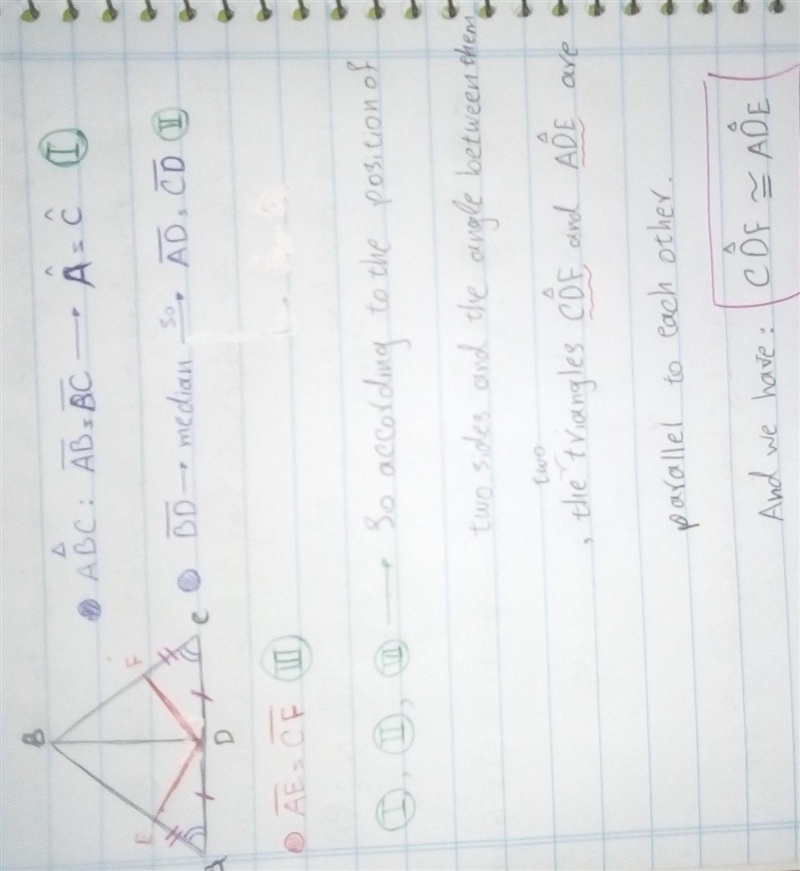 B
E
F
A
D
C
● ABC: AB = BC → Â = Ĉ Ⓘ
● BD → median so→ AD = CD Ⓘ Ⓘ
● AE = CF III
I, II, III → So according to the position of
two sides and the angle between them
, the two triangles CDF and ADE are
parallel to each other.
And we have: CDF ≅ ADE